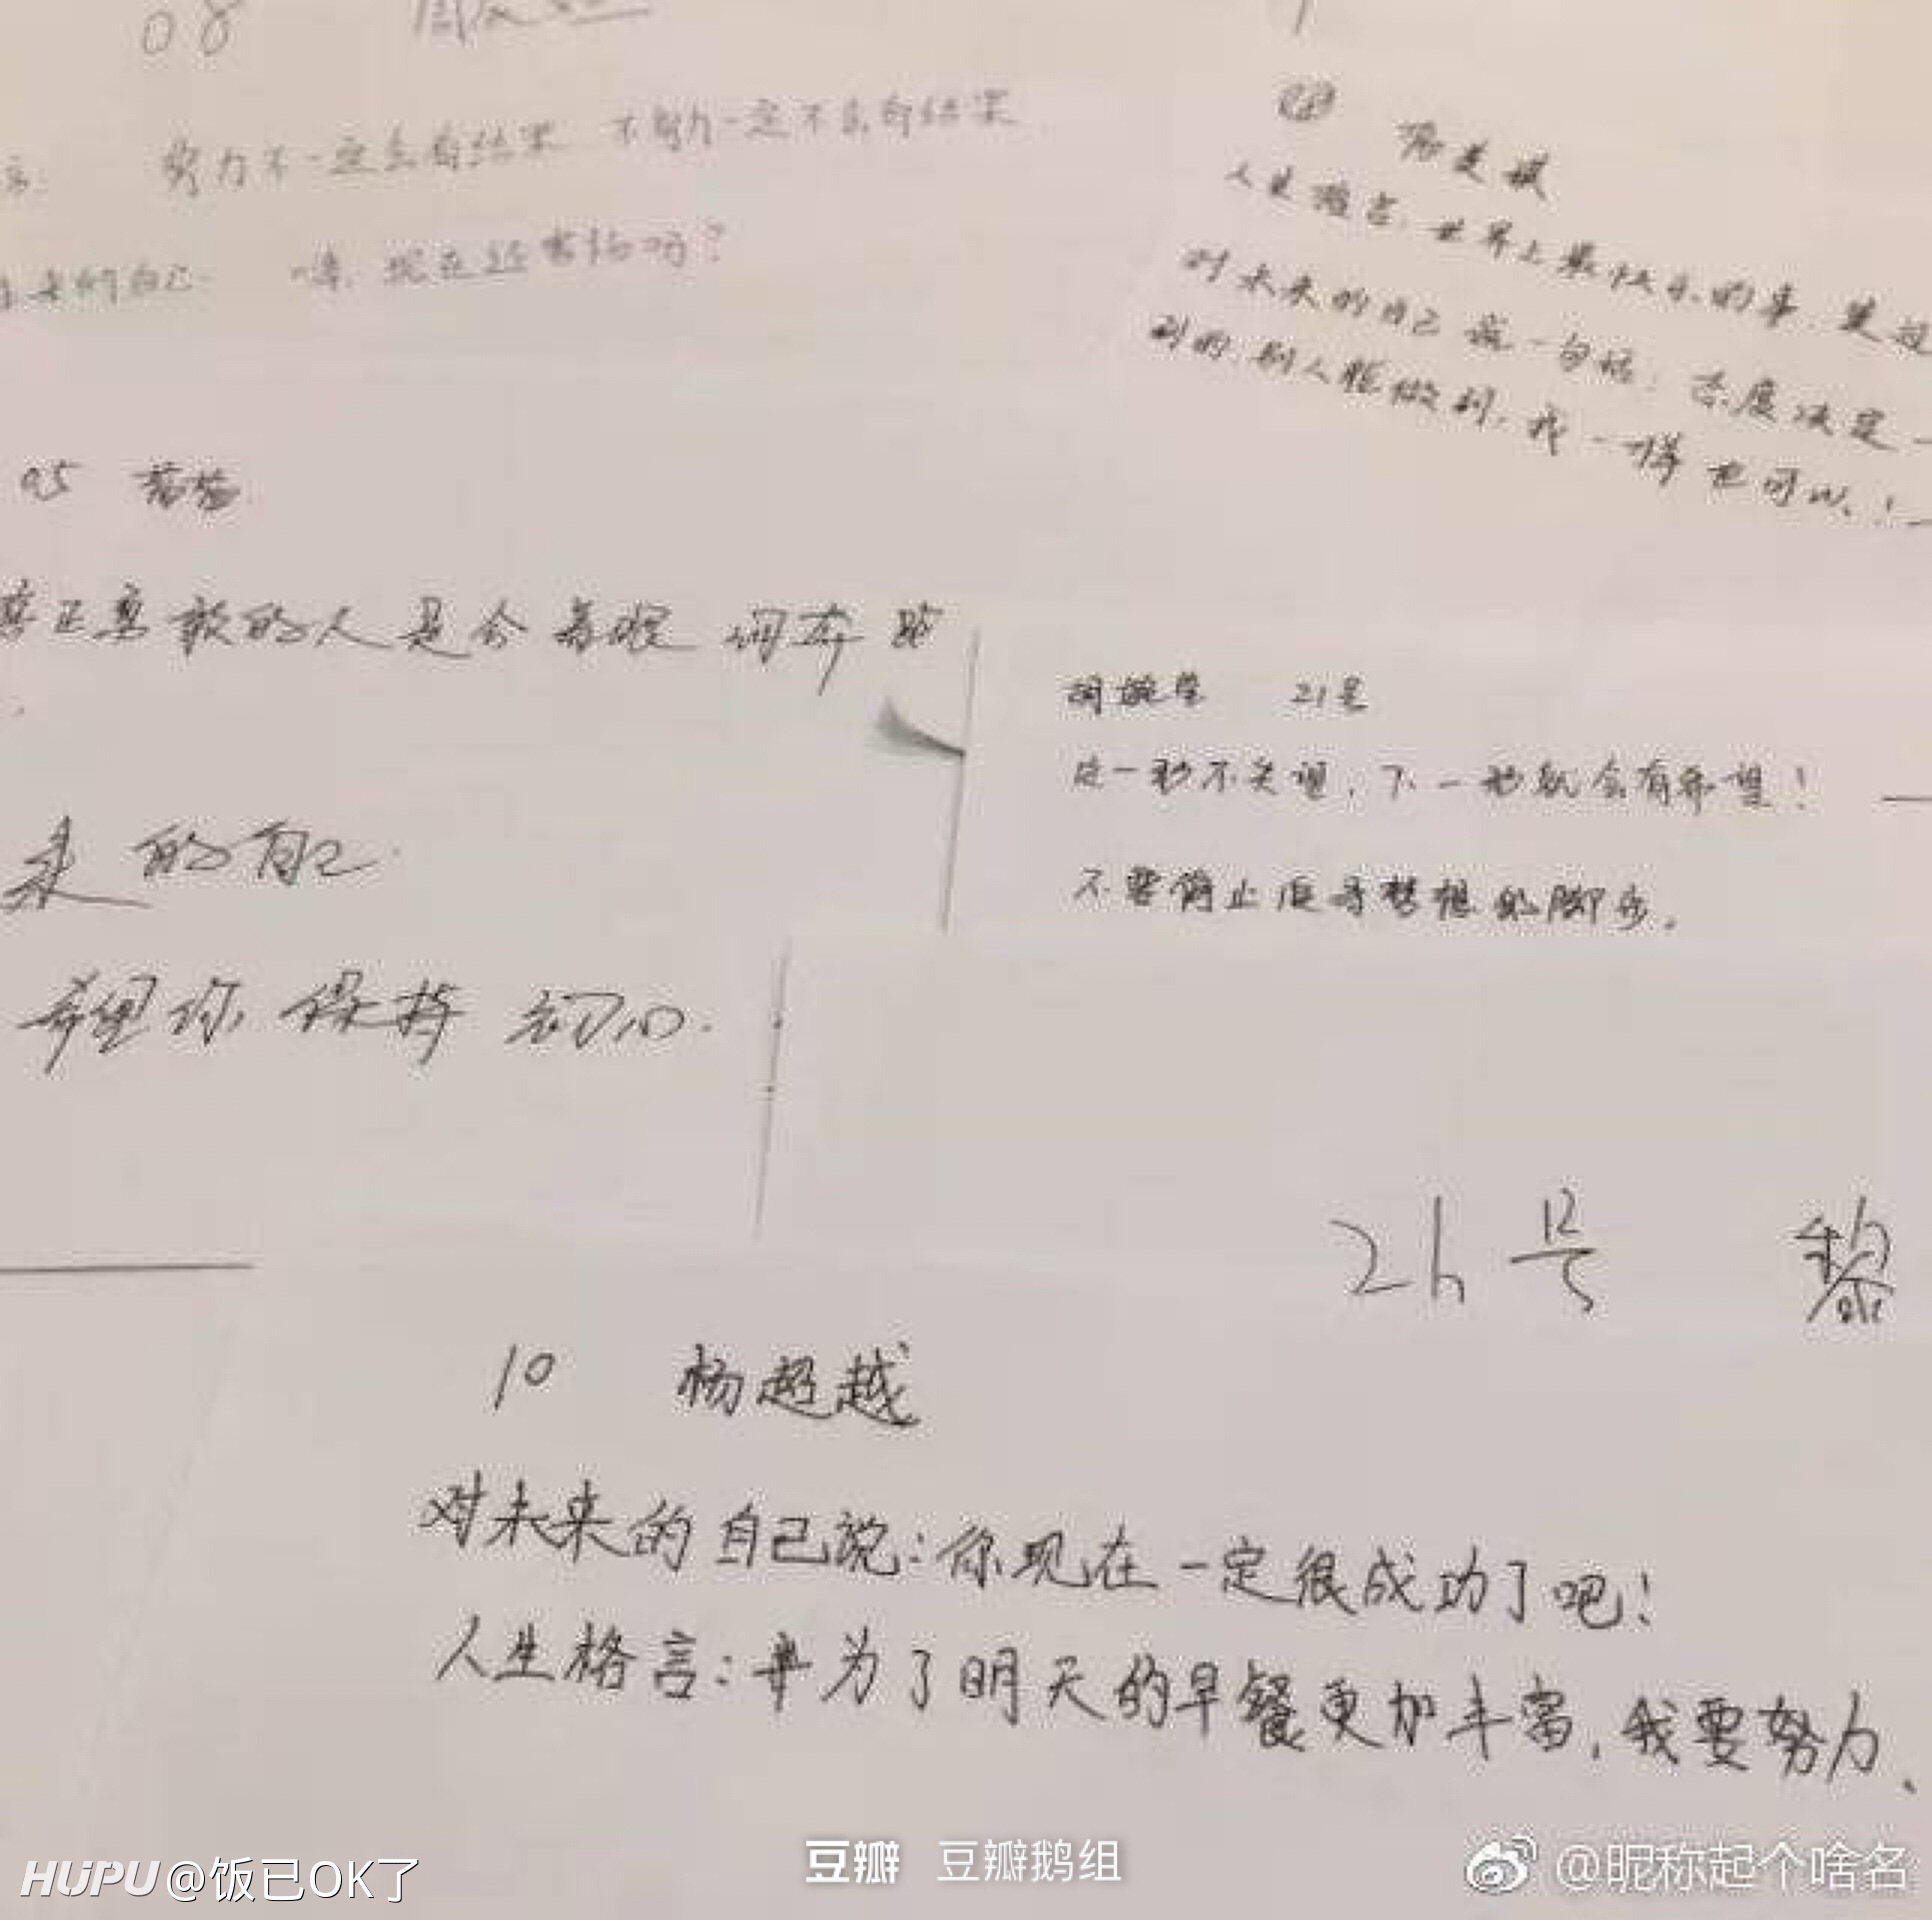 08
努力不一定会有结果 不努力一定不会有结果
来的自己 嗨，现在还常输吗？
人生格言：世界上最快乐的事，是
对未来的自己说一句话：态度决定一
到的，别人能做到，我一样也可以！
05
真正勇敢的人是会着眼 奔跑
来的自己
希望你 保持 初心.
21号
这一秒不失望，下一秒就会有希望！
不要停止追寻梦想的脚步。
26号 黎
10 杨超越
对未来的自己说：你现在一定很成功了吧！
人生格言：为了明天的早餐更加丰富，我要努力、
HUPU@饭已OK了
豆瓣 豆瓣鹅组
@昵称起个啥名